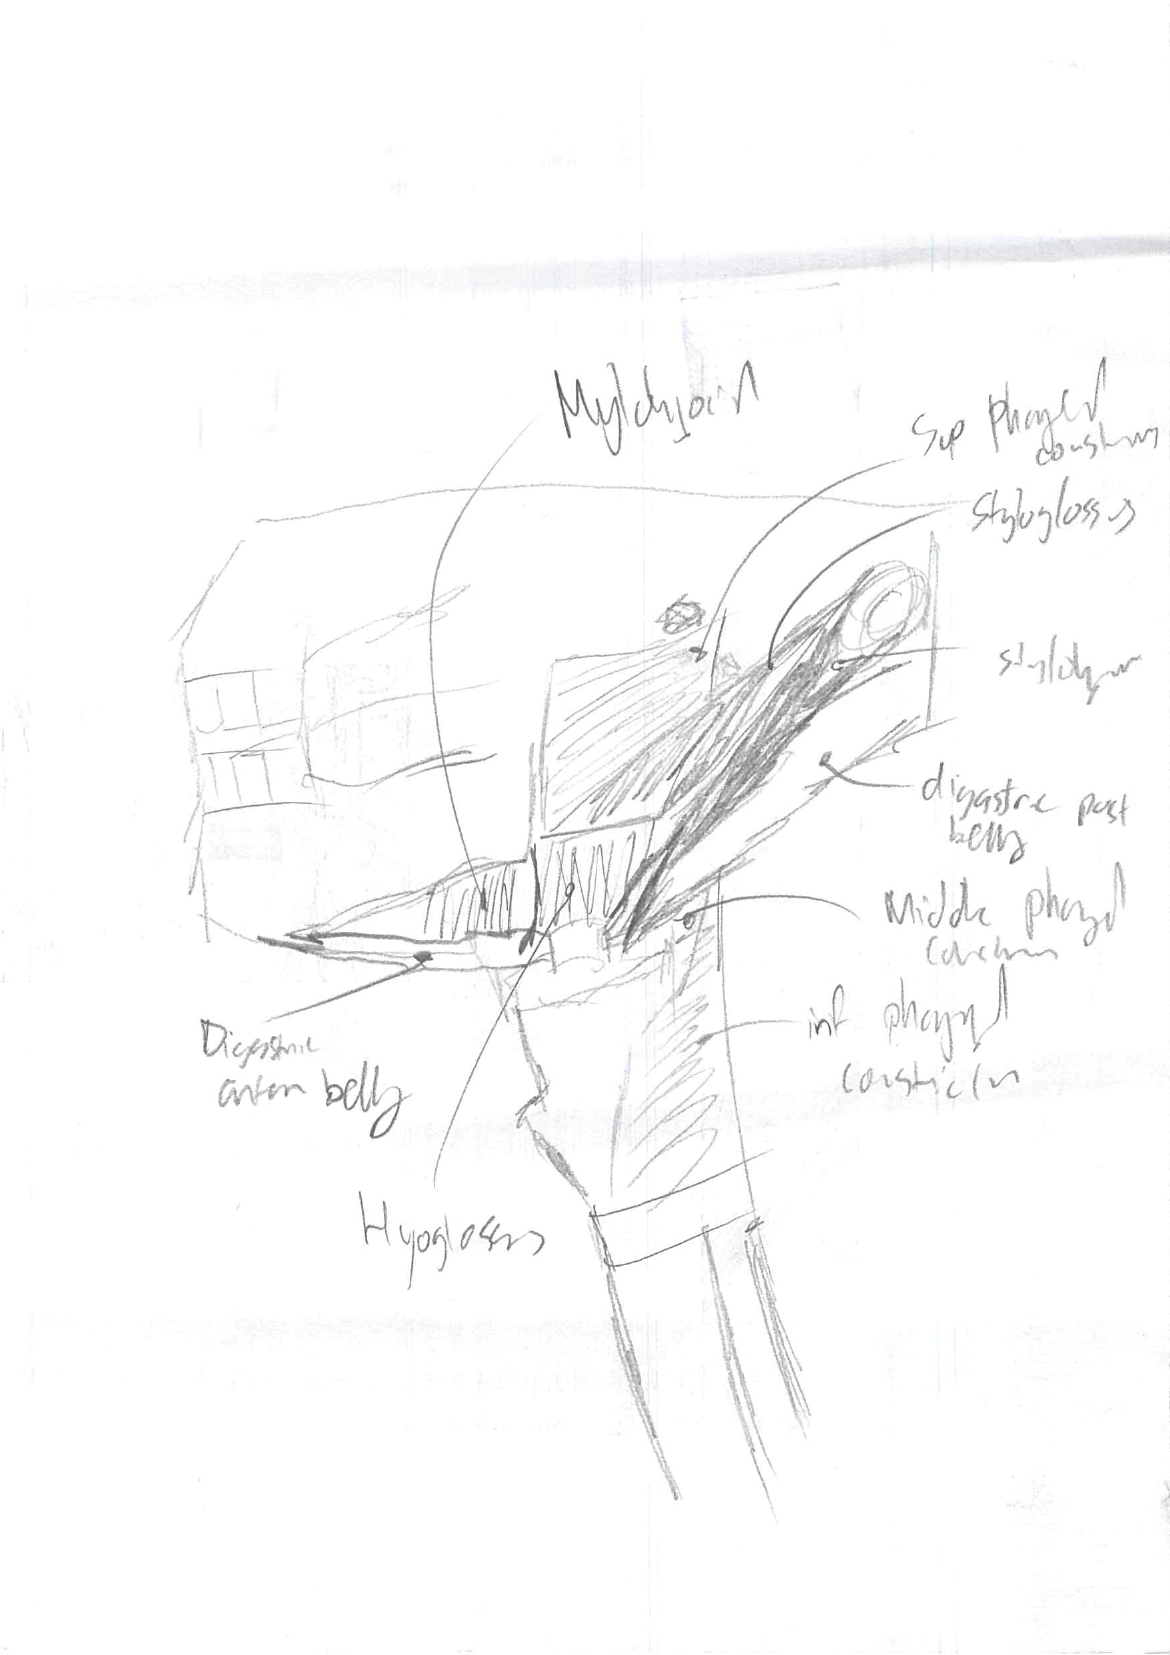 Mylohyoid
Sup Pharyngeal
constrictor
Styloglossus
Stylohyoid
digastric post
belly
Middle pharyngeal
constrictor
inf pharyngeal
constrictor
Digastric
anterior belly
Hyoglossus